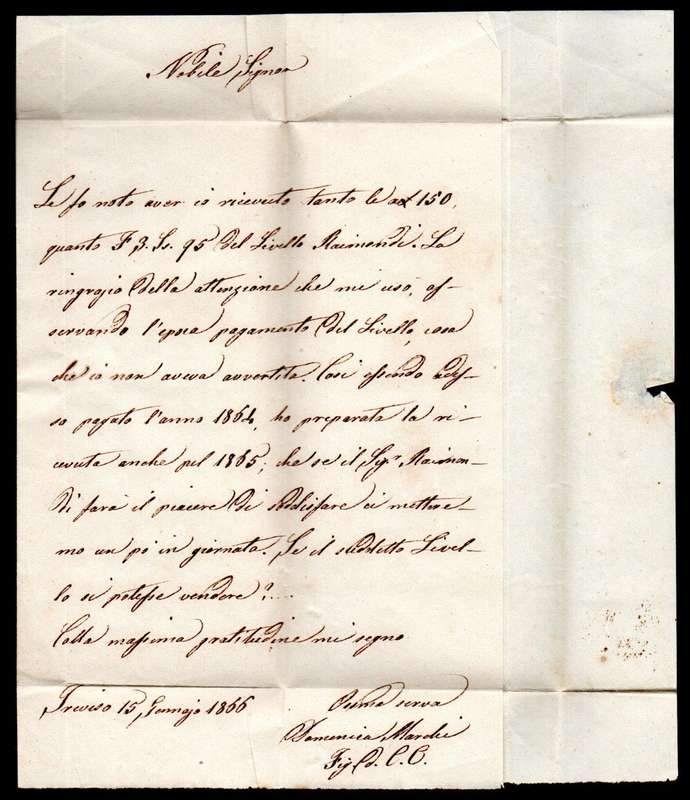 Nobile Signor
Le fo noto aver io ricevuto tanto le 150,
quanto F 3. Ss. 95 del Livello Raimondi. La
ringrazio della attenzione che mi usò, os-
servando l'epoca pagamento del Livello, cosa
che io non aveva avvertita. Così essendo ades-
so pagato l'anno 1864, ho preparata la ri-
cevuta anche pel 1865; che se il Sigr. Raimon-
di farà il piacere di soddisfare ci mettere-
mo un pò in giornata. Se il suddetto Livel-
lo si potesse vendere?....
Colla massima gratitudine mi segno
Treviso 15, Gennajo 1866
serva
Domenica Marchi
C. C.